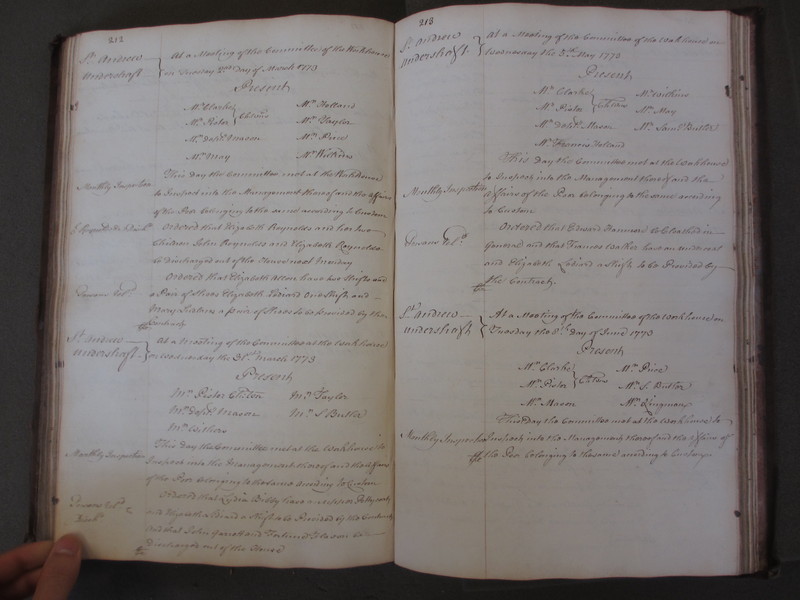 212
St. Andrew Undershaft
At a Meeting of the Committee of the Workhouse
on Tuesday 2nd day of March 1773
Present
Mr. Clarke Mr. Holland
Mr. Pistor Chwns Mr. Taylor
Mr. dep. Mason Mr. Price
Mr. May Mr. Withers
Monthly Inspection
This day the Committee met at the Workhouse
to Inspect into the Management thereof and the affairs
of the Poor belonging to the same according to Custom
Ordered that Elizabeth Reynolds and her two
Children John Reynolds and Elizabeth Reynolds
be discharged out of the House next Monday
Ordered that Elizabeth Allen have two Shifts and
a Pair of Shoes Elizabeth Lediard One Shift and
Mary a pair of Shoes to be provided by the
Contract
St. Andrew Undershaft
At a Meeting of the Committee at the Workhouse
on Wednesday the 31st March 1773
Present
Mr. Pistor Mr. Taylor
Mr. dep. Mason Mr. S Butler
Mr. Withers
Monthly Inspection
This day the Committee met at the Workhouse to
Inspect into the Management thereof and the affairs
of the Poor belonging to the same according to Custom
Ordered that Lydia have a Petty coat
and Elizabeth Ledi­ard a Shift to be Provided by the Contract
and that John and Mason be
Discharged out of the House
213
St. Andrew Undershaft
At a Meeting of the Committee of the Workhouse on
Wednesday the 5th May 1773
Present
Mr. Clarke Mr. Withers
Mr. Pistor Chwns Mr. May
Mr. dep. Mason Mr. Saml. Butler
Mr. Francis Holland
Monthly Inspection
This day the Committee met at the Workhouse
to Inspect into the Management thereof and the
affairs of the Poor belonging to the same according
to Custom
Ordered that Edward be Cloathed in
General and that Frances Walker have an under coat
and Elizabeth Lediard a Shift to be Provided by
the Contract
St. Andrew Undershaft
At a Meeting of the Committee of the Workhouse on
Tuesday the 8th day of June 1773
Present
Mr. Clarke Mr. Price
Mr. Pistor Chwns Mr. S. Butler
Mr. Mason Mr. Lingman
Monthly Inspection
This day the Committee met at the Workhouse to
Inspect into the Management thereof and the affairs of
the Poor belonging to the same according to Custom